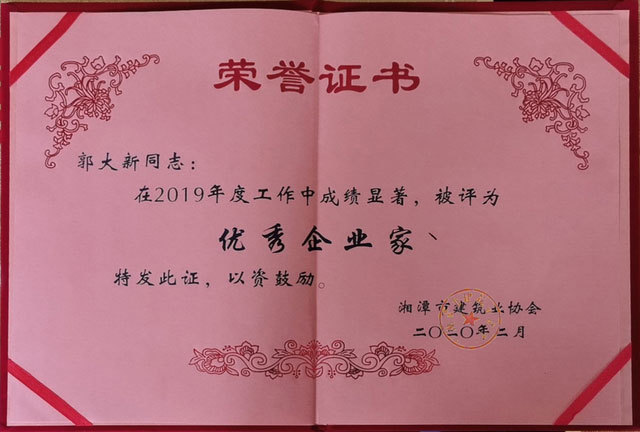 荣誉证书
郭大新同志：
在2019年度工作中成绩显著，被评为
优秀企业家
特发此证，以资鼓励。
湘潭市建筑业协会
二〇二〇年二月